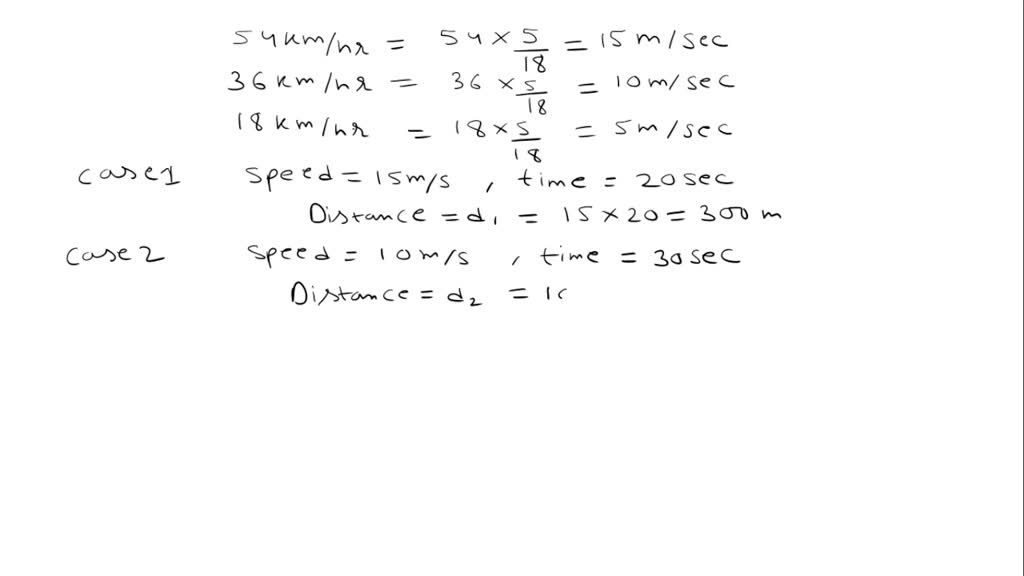 54 km/hr = 54 × 5/18 = 15 m/sec
36 km/hr = 36 × 5/18 = 10 m/sec
18 km/hr = 18 × 5/18 = 5 m/sec
case 1 speed = 15 m/s , time = 20 sec
Distance = d₁ = 15 × 20 = 300 m
case 2 speed = 10 m/s , time = 30 sec
Distance = d₂ = 1